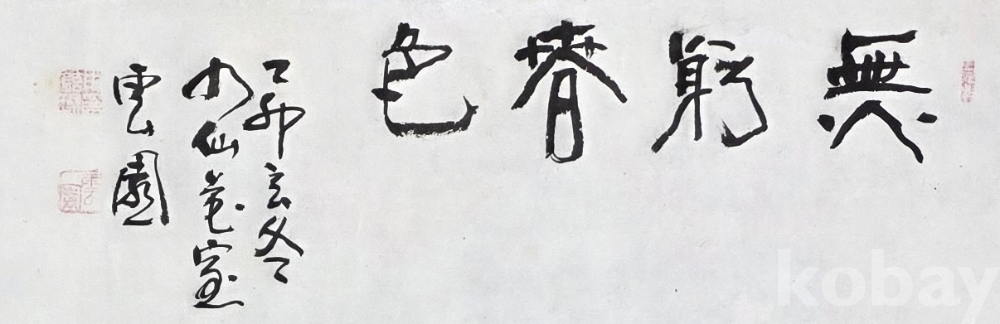 無窮春色
乙卯玄冬
仙花室
雲園
kobay